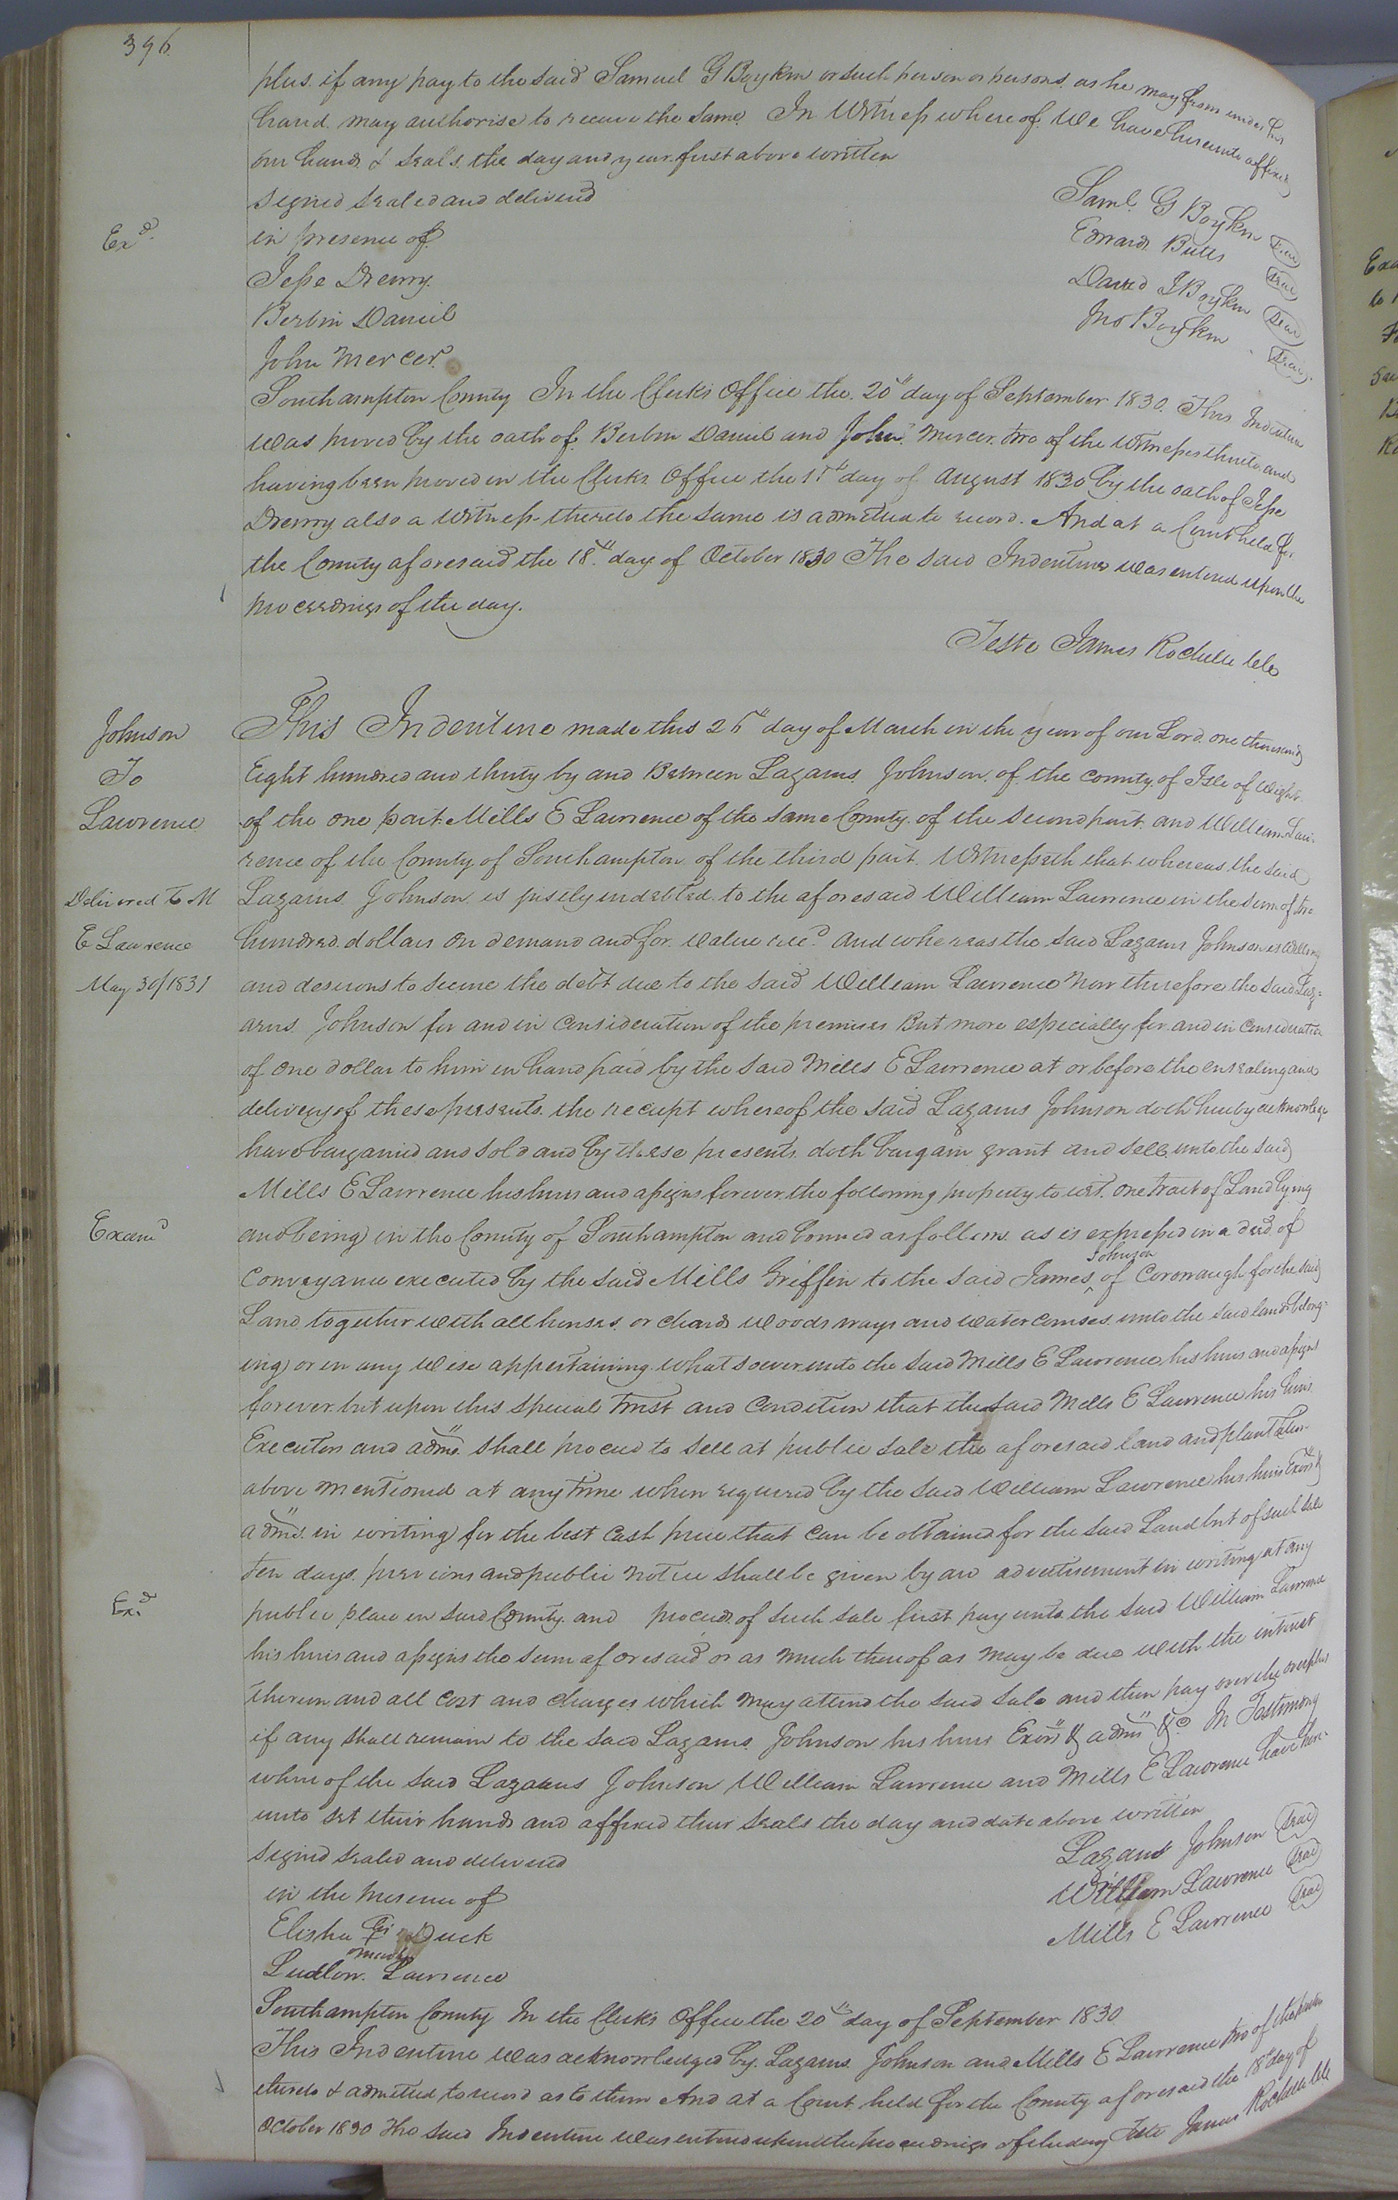 396.
plus if any pay to the said Samuel G Boykin or such person or persons as he may from under his
hand may authorise to receive the same. In Witness whereof We have hereunto affixed
our hands & seals the day and year first above written
signed sealed and delivered
in presence of
Jesse Drewry.
Berlin Daniel
John Mercer
Saml. G Boykin Seal
Edward Butts Seal
David J Boykin Seal
Jno Boykin Seal
Exd.
Southampton County In the Clerks Office the 20th day of September 1830. This Indenture
was proved by the oath of Berlin Daniel and John Mercer two of the witnesses thereto and
having been proved in the Clerks Office the day of August 1830 by the oath of Jesse
Drewry also a witness thereto the same is admitted to record. And at a Court held for
the County aforesaid the 18th. day of October 1830 The said Indenture was entered upon the
proceedings of the day.
Teste James Rochelle Clk
Johnson
To
Lawrence
Delivered to M
E Lawrence
May 30/1831
Examd
Exd.
This Indenture made this day of March in the year of our Lord one thousand
Eight hundred and thirty by and Between Lazarus Johnson of the county of Isle of Wight
of the one part Mills E Lawrence of the same County of the second part and William Law-
rence of the County of Southampton of the third part. Witnesseth that whereas the said
Lazarus Johnson is justly indebted to the aforesaid William Lawrence in the sum of
hundred dollars on demand and for value recd. and whereas the said Lazarus Johnson is willing
and desirous to secure the debt due to the said William Lawrence Now therefore the said Laz-
arus Johnson for and in consideration of the premises But more especially for and in consideration
of one dollar to him in hand paid by the said Mills E Lawrence at or before the ensealing and
delivery of these presents the receipt whereof the said Lazarus Johnson doth hereby acknowledge
have bargained and sold and by these presents doth bargain grant and sell unto the said
Mills E Lawrence his heirs and assigns forever the following property to wit. one tract of Land lying
and being in the County of Southampton and bound as follows as is expressed in a deed of
conveyance executed by the said Mills Griffin to the said James Johnson of Coronaugh for the said
Land together with all houses orchards woods ways and water courses unto the said land belong-
ing or in any wise appertaining whatsoever unto the said Mills E Lawrence his heirs and assigns
forever but upon this special trust and condition that the said Mills E Lawrence his heirs
Executors and adms. shall proceed to sell at public sale the aforesaid land and plantation
above mentioned at any time when required by the said William Lawrence his heirs Exors &
adms. in writing for the best cash price that can be obtained for the said Land but of such sale
ten days previous and public notice shall be given by an advertisement in writing at any
public place in said County and proceeds of such sale first pay unto the said William Lawrence
his heirs and assigns the sum aforesaid or as much thereof as may be due with the interest
thereon and all cost and charges which may attend the said sale and then pay over the overplus
if any shall remain to the said Lazarus Johnson his heirs Exors & adms &c. In Testimony
whereof the said Lazarus Johnson William Lawrence and Mills E Lawrence have here-
unto set their hands and affixed their seals the day and date above written
signed sealed and delivered
in the presence of
Elisha his Duck
mark
Ludlow. Lawrence
Lazarus Johnson Seal
William Lawrence Seal
Mills E Lawrence Seal
Southampton County In the Clerks Office the 20th day of September 1830
This Indenture was acknowledged by Lazarus Johnson and Mills E Lawrence two of the parties
thereto & admitted to record as to them And at a Court held for the County aforesaid the 18th day of
October 1830 The said Indenture was entered upon the proceedings of the day Teste James Rochelle Clk